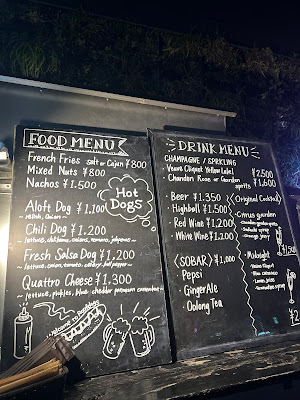 FOOD MENU
French Fries salt or Cajun ¥800
Mixed Nuts ¥800
Nachos ¥1.500
Hot
Dogs
Aloft Dog ¥1.100
Chili Dog ¥1.200
~ lettuce, chilibeans, onions, tomato, jalapenos ~
Fresh Salsa Dog ¥1.200
Quattro Cheese ¥1.300
~ lettuce, pickles, blue cheddar parmesan camembert ~
Welcome to
DRINK MENU
CHAMPAGNE / SPARKLING
・Veuve Clicquot Yellow Label ¥2.500
・Chandon Rose or Garden
spritz ¥1.600
・Beer ¥1.350
・Highball ¥1.500
・Red Wine ¥1.200
・White Wine ¥1.200
<SOBAR> ¥1,000
・Pepsi
・GingerAle
・Oolong Tea
<Original Cocktail>
Citrus garden
Midnight